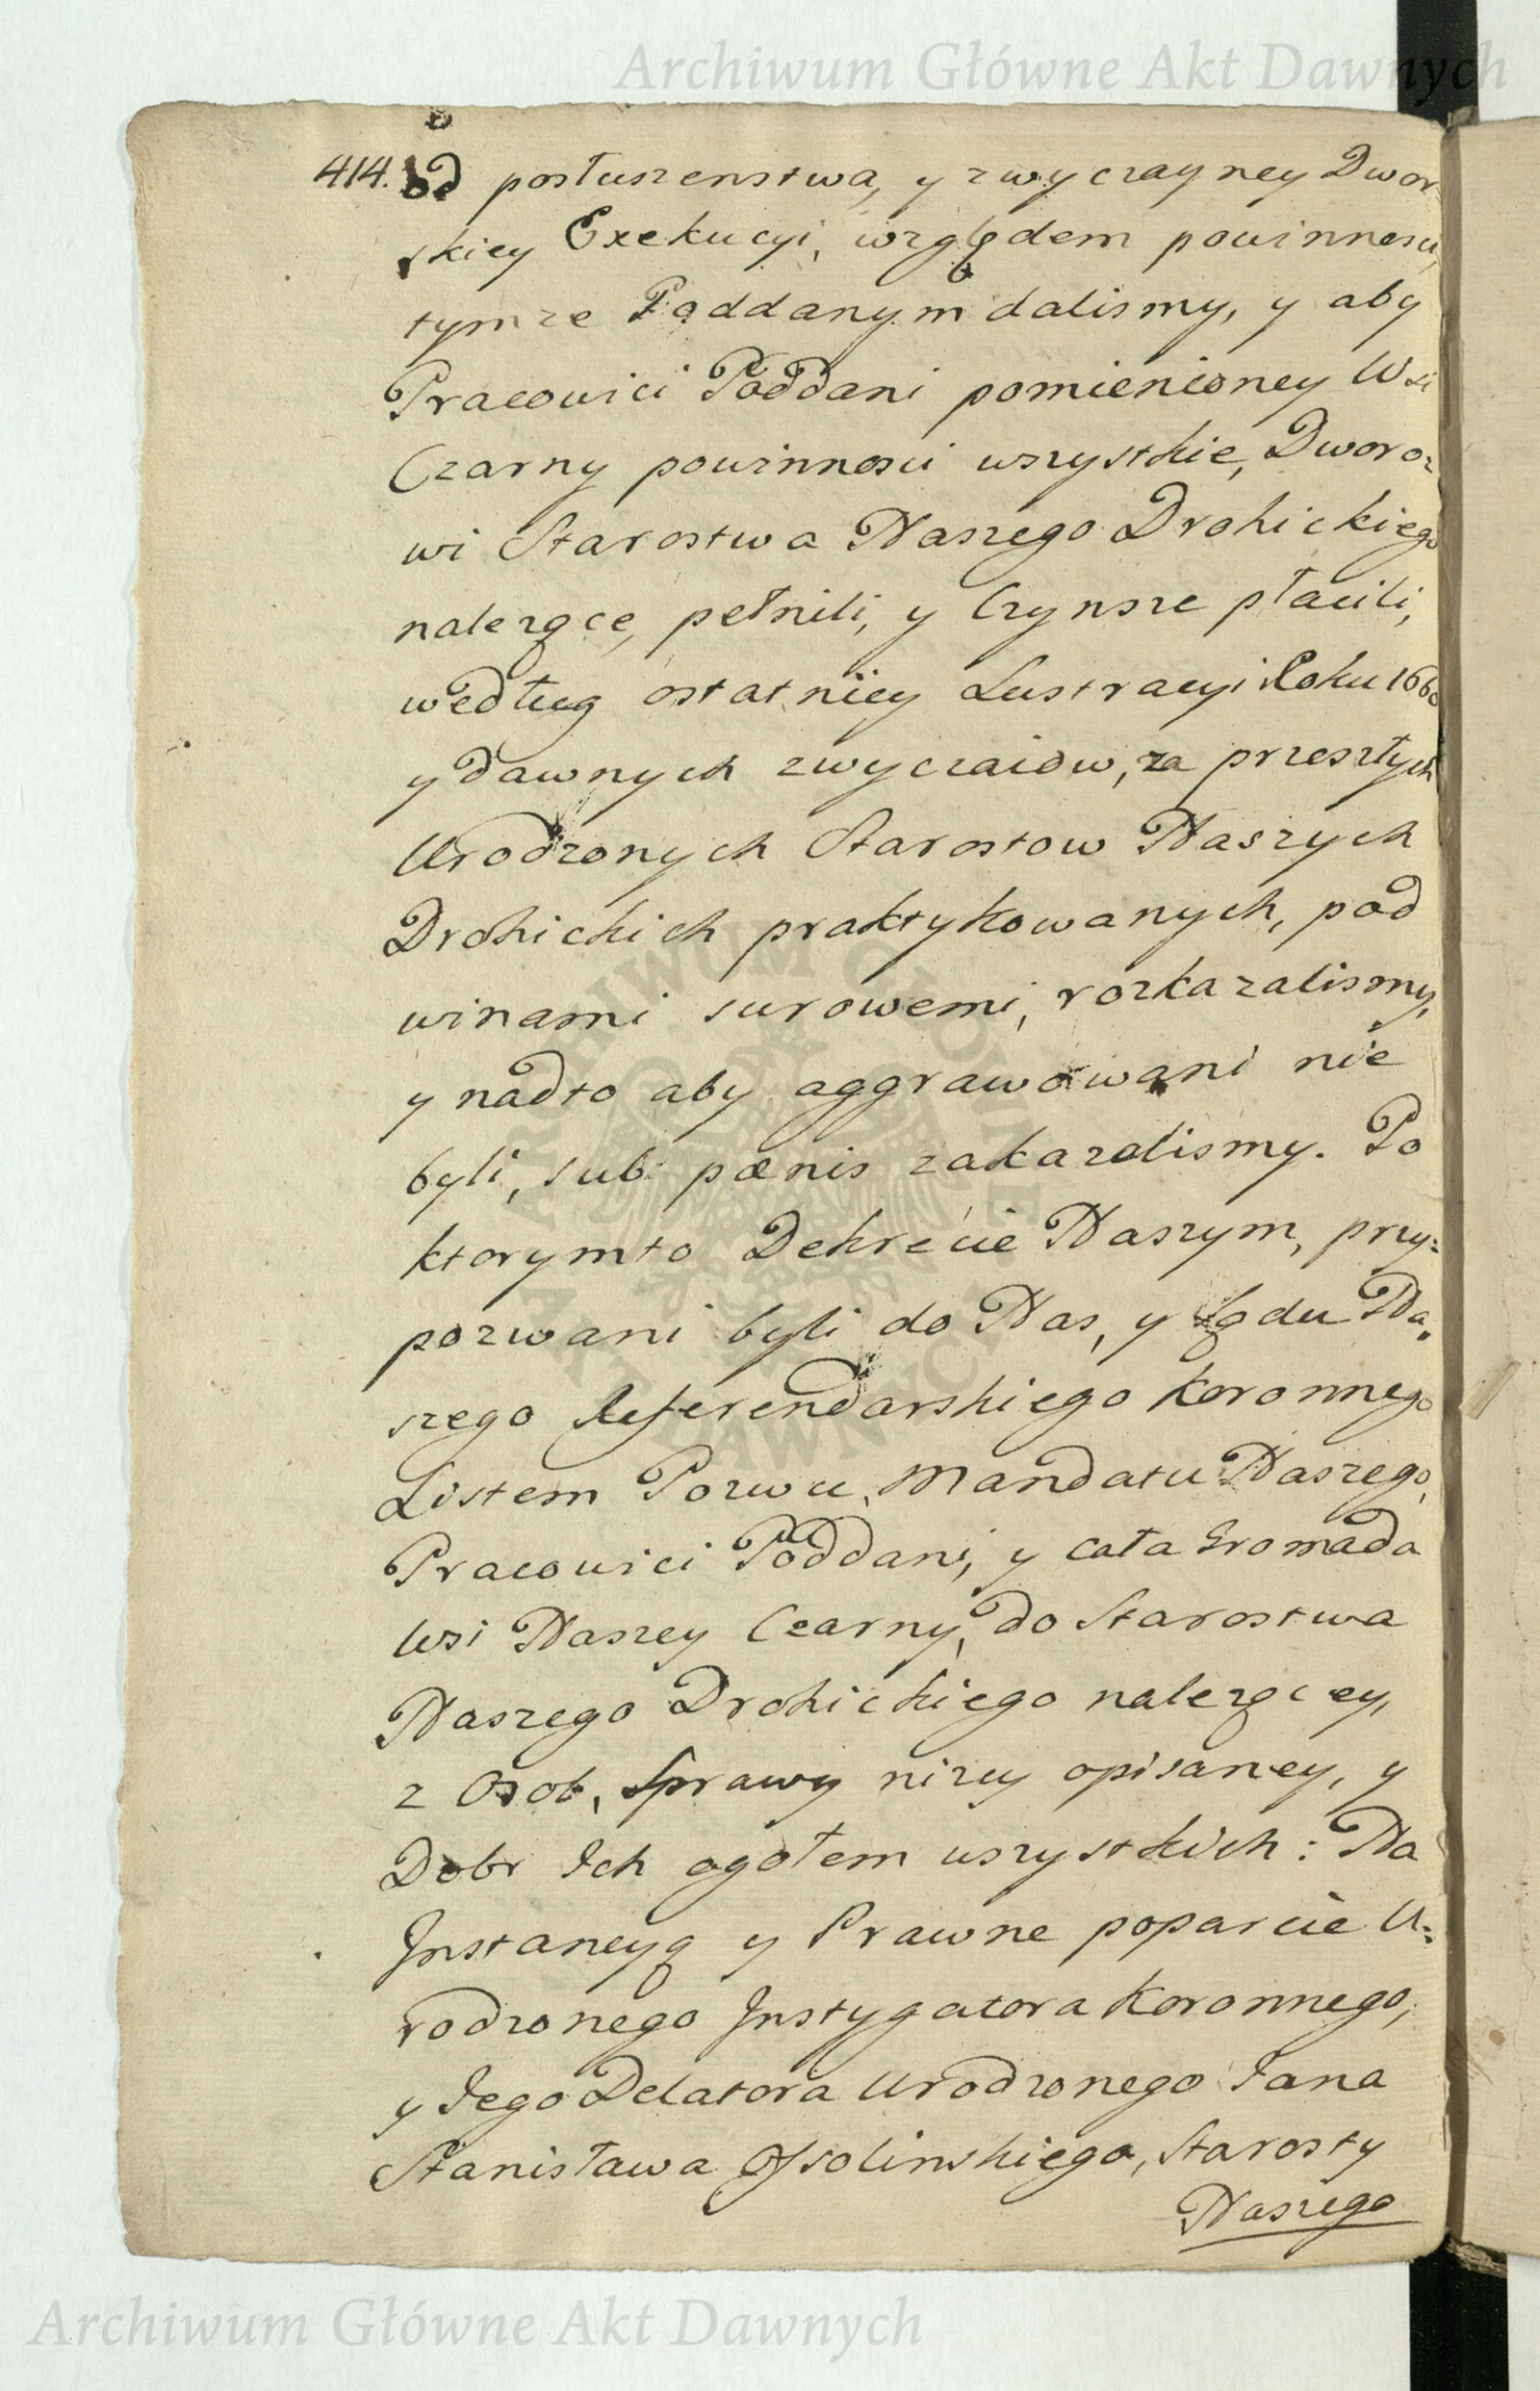 Archiwum Główne Akt Dawnych
414. od posłuszenstwa, y zwyczayney Dwor-
skiey Exekucyi, względem powinnosci,
tymze Poddanym dalismy, y aby
Pracowici Poddani pomienioney Wsi
Czarny powinnosci wszystkie, Dworo=
wi Starostwa Naszego Drohickiego
nalezące, pełnili, y Czynsze płacili,
według ostatniey Lustracyi Roku 1660
y dawnych zwyczaiow, za przeszłych
Urodzonych Starostow Naszych
Drohickich praktykowanych, pod
winami surowemi, rozkazalismy,
y nadto aby aggrawowani nie
byli, sub pænis zakazalismy. Po
ktorymto Dekrecie Naszym, przy=
pozwani byli do Nas, y Sądu Na„
szego Referendarskiego Koronnego
Listem Pozwu, Mandatu Naszego,
Pracowici Poddani, y cała Gromada
Wsi Naszey Czarny, do Starostwa
Naszego Drohickiego nalezącey,
z Osob, Sprawy nizey opisaney, y
Dobr Ich ogołem wszystkich: Na
Instancyą y Prawne poparcie U=
rodzonego Instygatora Koronnego,
y Iego Delatora Urodzonego Iana
Stanisława Ossolinskiego, Starosty
Naszego
ARCHIWUM GŁÓWNE
AKT DAWNYCH
Archiwum Główne Akt Dawnych